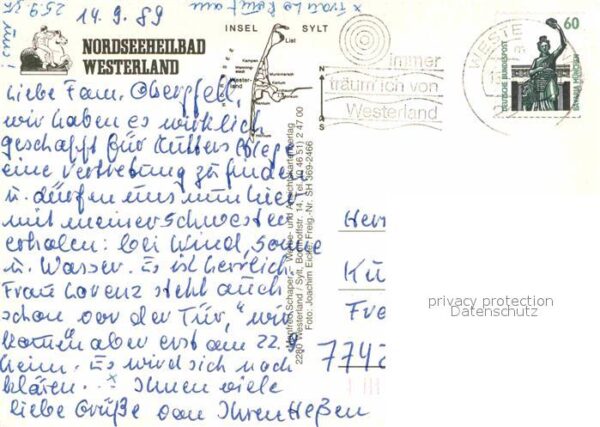 25.9.
14.9.89
uns!
NORDSEEHEILBAD
WESTERLAND
INSEL SYLT
List
Kampen
Wenning-
stedt
Munkmarsch
Wester-
land
Keitum
N
S
immer
träum ich von
Westerland
WESTE
60
DEUTSCHE BUNDESPOST
Liebe Fam. Obergfell,
wir haben es wirklich
geschafft für Mutters Pflege
eine Vertretung zu finden
u. dürfen uns nun hier
mit meiner Schwester
erholen: bei Wind, Sonne
u. Wasser. Es ist herrlich.
Frau Lorenz steht auch
schon vor der Tür, "wir
kommen aber erst am 22.9.
heim. Es wird sich noch
klären. Ihnen viele
liebe Grüße von Ihren Heßen
Manfred Schaper – Werbe- und Ansichtskartenverlag
2280 Westerland / Sylt, Bomhoffstr. 14, Tel. (0 46 51) 2 47 00
Foto: Joachim Eicke, Freig.-Nr. SH 369-2466
Herr
Kü
Fre
774
privacy protection
Datenschutz